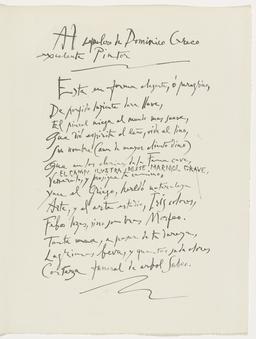 Al sepulcro de Dominico Greco
excelente Pintor
Esta en forma elegante, ó peregrino,
De porfido luciente dura llave,
El pincel niega al mundo mas suave,
Que dió espiritu al leño, vida al lino,
Su nombre (aun de mayor aliento dino)
Que en los clarines de la Fama cave,
EL CAMPO ILUSTRA DE ESTE MARMOL GRAVE,
Veneralo, y prosigue tu camino.
yace el Griego, heredó naturaleza
Arte, y el arte estudio, Iris colores,
Febo luces, sino sombras Morfeo.
Tanta urna, a pesar de su dureza,
Lagrimas beva, y quantos suda olores
Corteza funeral de arbol Sabeo.